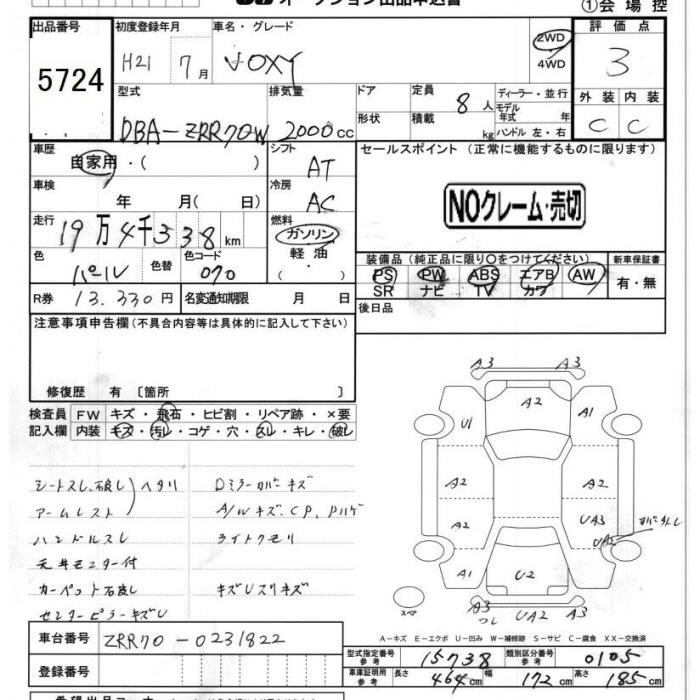 ①会場控
出品番号 初度登録年月 車名・グレード 2WD 4WD 評価点
5724 H21 7月 VOXY 3
型式 排気量 ドア 定員 8人 ディーラー・並行 外装 内装
DBA-ZRR70W 2000cc 形状 積載 kg モデル年式 年 ハンドル 左・右 C C
車歴 自家用・( ) シフト AT セールスポイント (正常に機能するものに限ります)
車検 年 月( 日) 冷房 AC
NOクレーム・売切
走行 19万4千338km 燃料 ガソリン 軽油
色 パール 色替 色コード 070
装備品 (純正品に限り○をつけてください) 新車保証書
PS PW ABS エアB AW 有・無
SR ナビ TV カワ
R券 13,330円 名変通知期限 月 日 後日品
注意事項申告欄 (不具合内容等は具体的に記入して下さい)
修復歴 有 〔箇所 〕
検査員 FW キズ・飛石・ヒビ割・リペア跡・×要
記入欄 内装 キズ・汚レ・コゲ・穴・スレ・キレ・破レ
シートスレ、破レ ヘタリ Dミラーカバーキズ
アームレスト A/Wキズ、CP、Pハゲ
ハンドルスレ ライトクモリ
天井モニター付
カーペット破レ キズUスリキズ
センターピラーキズU
A3 A3
A2
U1 A1
A2 A2
A2 UA3
UA2
A1 U2
スペア A3 UA2 A3
A-キズ E-エクボ U-凹み W-補修跡 S-サビ C-腐食 XX-交換済
車台番号 ZRR70-0231822
型式指定番号 参考 15738 類別区分番号 参考 0105
登録番号 車庫証明用 参考 長さ 464cm 幅 172cm 高さ 185cm